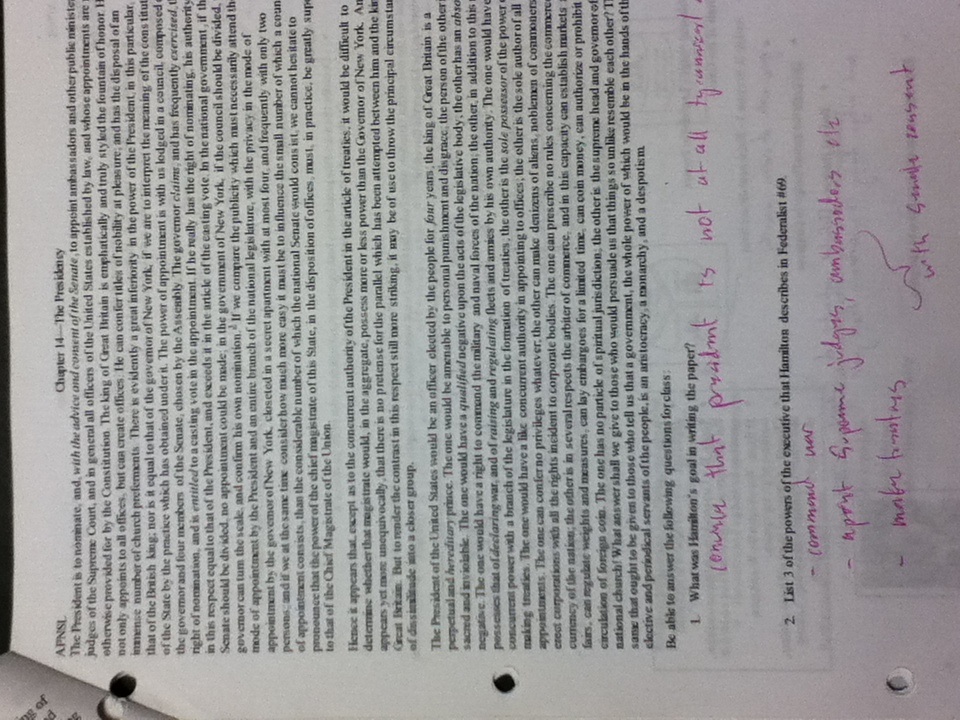 ng of
d
APNSL
Chapter 14—The Presidency
The President is to nominate, and, with the advice and consent of the Senate, to appoint ambassadors and other public ministe
judges of the Supreme Court, and in general all officers of the United States established by law, and whose appointments are
otherwise provided for by the Constitution. The king of Great Britain is emphatically and truly styled the fountain of honor. H
not only appoints to all offices, but can create offices. He can confer titles of nobility at pleasure; and has the disposal of an
immense number of church preferments. There is evidently a great inferiority in the power of the President, in this particular,
that of the British king; nor is it equal to that of the governor of New York, if we are to interpret the meaning of the constitut
of the State by the practice which has obtained under it. The power of appointment is with us lodged in a council, composed
the governor and four members of the Senate, chosen by the Assembly. The governor claims, and has frequently exercised, t
right of nomination, and is entitled to a casting vote in the appointment. If he really has the right of nominating, his authority
in this respect equal to that of the President, and exceeds it in the article of the casting vote. In the national government, if th
Senate should be divided, no appointment could be made; in the government of New York, if the council should be divided,
governor can turn the scale, and confirm his own nomination. If we compare the publicity which must necessarily attend th
mode of appointment by the President and an entire branch of the national legislature, with the privacy in the mode of
appointment by the governor of New York, closeted in a secret apartment with at most four, and frequently with only two
persons; and if we at the same time consider how much more easy it must be to influence the small number of which a coun
of appointment consists, than the considerable number of which the national Senate would consist, we cannot hesitate to
pronounce that the power of the chief magistrate of this State, in the disposition of offices, must, in practice, be greatly supe
to that of the Chief Magistrate of the Union.
Hence it appears that, except as to the concurrent authority of the President in the article of treaties, it would be difficult to
determine whether that magistrate would, in the aggregate, possess more or less power than the Governor of New York. An
appears yet more unequivocally, that there is no pretense for the parallel which has been attempted between him and the kin
Great Britain. But to render the contrast in this respect still more striking, it may be of use to throw the principal circumstan
of dissimilitude into a closer group.
The President of the United States would be an officer elected by the people for four years; the king of Great Britain is a
perpetual and hereditary prince. The one would be amenable to personal punishment and disgrace; the person of the other
sacred and inviolable. The one would have a qualified negative upon the acts of the legislative body; the other has an abso
negative. The one would have a right to command the military and naval forces of the nation; the other, in addition to this
possesses that of declaring war, and of raising and regulating fleets and armies by his own authority. The one would have
concurrent power with a branch of the legislature in the formation of treaties; the other is the sole possessor of the power
making treaties. The one would have a like concurrent authority in appointing to offices; the other is the sole author of all
appointments. The one can confer no privileges whatever; the other can make denizens of aliens, noblemen of commoners
erect corporations with all the rights incident to corporate bodies. The one can prescribe no rules concerning the commerc
currency of the nation; the other is in several respects the arbiter of commerce, and in this capacity can establish markets
fairs, can regulate weights and measures, can lay embargoes for a limited time, can coin money, can authorize or prohibit
circulation of foreign coin. The one has no particle of spiritual jurisdiction; the other is the supreme head and governor of
national church! What answer shall we give to those who would persuade us that things so unlike resemble each other? T
same that ought to be given to those who tell us that a government, the whole power of which would be in the hands of th
elective and periodical servants of the people, is an aristocracy, a monarchy, and a despotism.
Be able to answer the following questions for class:
1. What was Hamilton's goal in writing the paper?
that president is not at all tyrannical
2. List 3 of the powers of the executive that Hamilton describes in Federalist #69.
- command war
- apoint Supreme judges, ambassadors etc
- make treaties
with senate consent